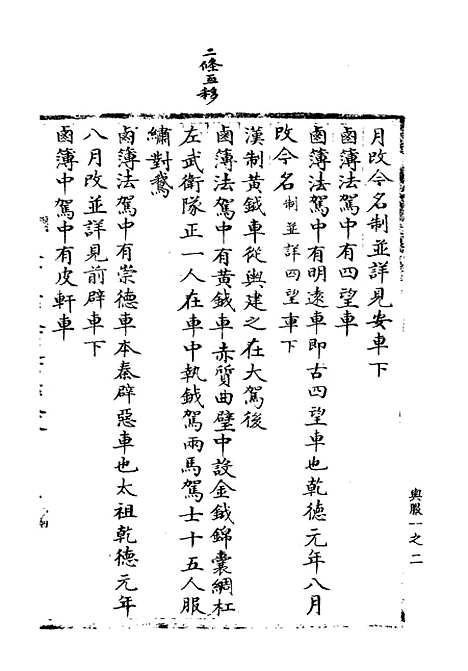 二條互移
月改今名制並詳見安車下
鹵簿法駕中有四望車
鹵簿法駕中有明遠車即古四望車也乾德元年八月
改今名制並詳四望車下
漢制黃鉞車從輿建之在大駕後
鹵簿法駕中有黃鉞車赤質曲壁中設金鉞錦囊綢杠
左武衛隊正一人在車中執鉞駕兩馬駕士十五人服
繡對鵞
鹵簿法駕中有崇德車本秦辟惡車也太祖乾德元年
八月改並詳見前辟車下
鹵簿中駕中有皮軒車
輿服一之二